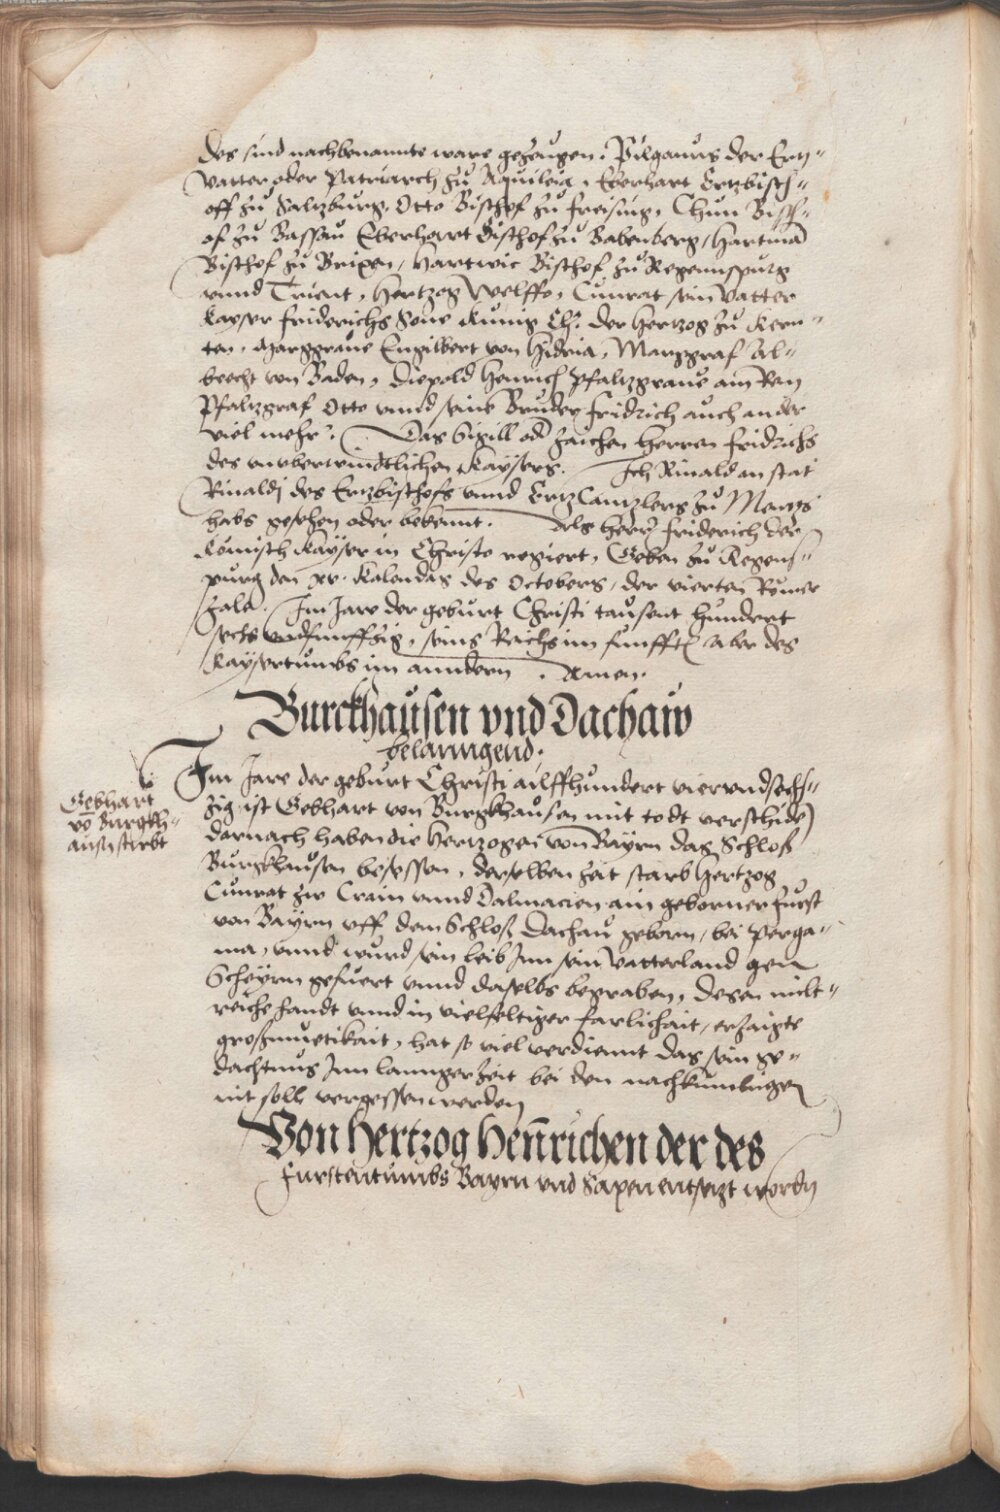 Des sind nachbenannte ware gezeugen. Pilgaurus der Ertz-
vatter oder Patriarch zů Aquileia, Eberhart Ertzbisch-
off zů Saltzburg, Otto Bischof zů freising, Chun Bisch-
of zů Bassau Eberhart Bischof zů Babenberg, Hartmã
Bischof zů Brixen, Hartwic Bischof zů Regennspurg
vnnd Trient, Hertzog Welffo, Cunrat sein vatter
kayser friderichs Sone kunig der Hertzog zů Kern-
ten, Marggraue Engilbert von Hidria, Marggraf Al-
brecht von Baden, Diepold Henrich Pfaltzgraue am Rein
Pfaltzgraf Otto vnnd seine Bruder fridrich auch ander
viel mehr. Das Sigill od zaichen Herren fridrichs
des vnvberwindtlichen kaysers. Ich Rinald an stat
Rinaldj des Ertzbischofs vnnd Ertz Cantzlers zů Mentz
habs gesehen oder bekennt. Als Herr friderich der
Römisch kayser in Christo regiert, Geben zů Regens-
purg den xv. kalendas des Octobers, der vierten Römer
zale. Im Jare der geburt Christi tausent hundert
sechs vndfunffzig, seins Reichs im funfften aber des
kaysertumbs im anndern. Amen.
Burckhausen vnd Dachaw
belanngend.
Im Jare der geburt Christi ailffhundert viervndsechs-
zig ist Gebhart von Burgkhausen mit todt verschiden
Gebhart
võ Burgkh-
ausn stirbt
darnach haben die Hertzogen von Bayrn das Schloß
Burgkhausen besessen, derselben zeit starb Hertzog
Cunrat zw Crain vnnd Dalmacien ain geborner fürst
von Bayrn vff dem Schloß Dachau geborn, bei Perga-
ma, vnnd wurd sein leib Inn sein vatterland gen
Scheyrn gefuert vnnd daselbs begraben, desen milt-
reiche handt vnnd in vielfeltiger farlichait, erzaigte
großmuetikait, hat so viel verdiennt das sein ge-
dachtnus Inn lannger zeit bei den nachkumlingen
nit soll vergessen werden
Von Hertzog Henrichen der des
furstentumbs Bayrn vnd Saxen entsetzt wordn